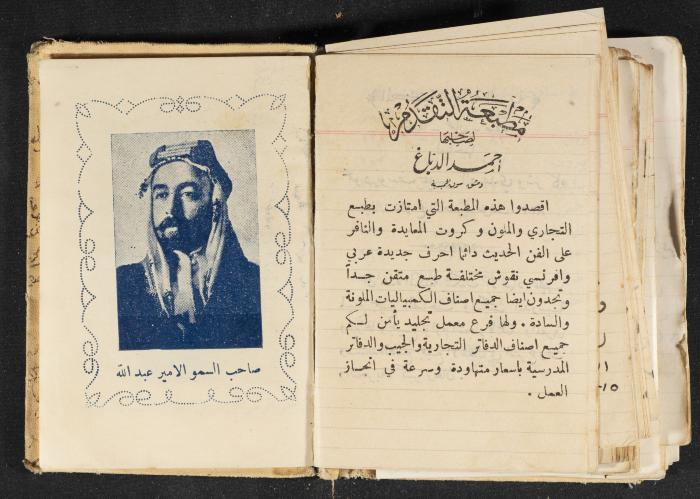 صاحب السمو الامير عبد الله
مطبعة التقدم
لصاحبها
احمد الدباغ
دمشق سوق
اقصدوا هذه المطبعة التي امتازت بطبع
التجاري والملون و كروت المعايدة والنافر
على الفن الحديث دائما احرف جديدة عربي
وافرنسي نقوش مختلفة طبع متقن جداً
وتجدون ايضا جميع اصناف الكمبياليات الملونة
والسادة . ولها فرع معمل تجليد يأمن لكم
جميع اصناف الدفاتر التجارية والجيب والدفاتر
المدرسية باسعار متهاودة وسرعة في انجاز
العمل .